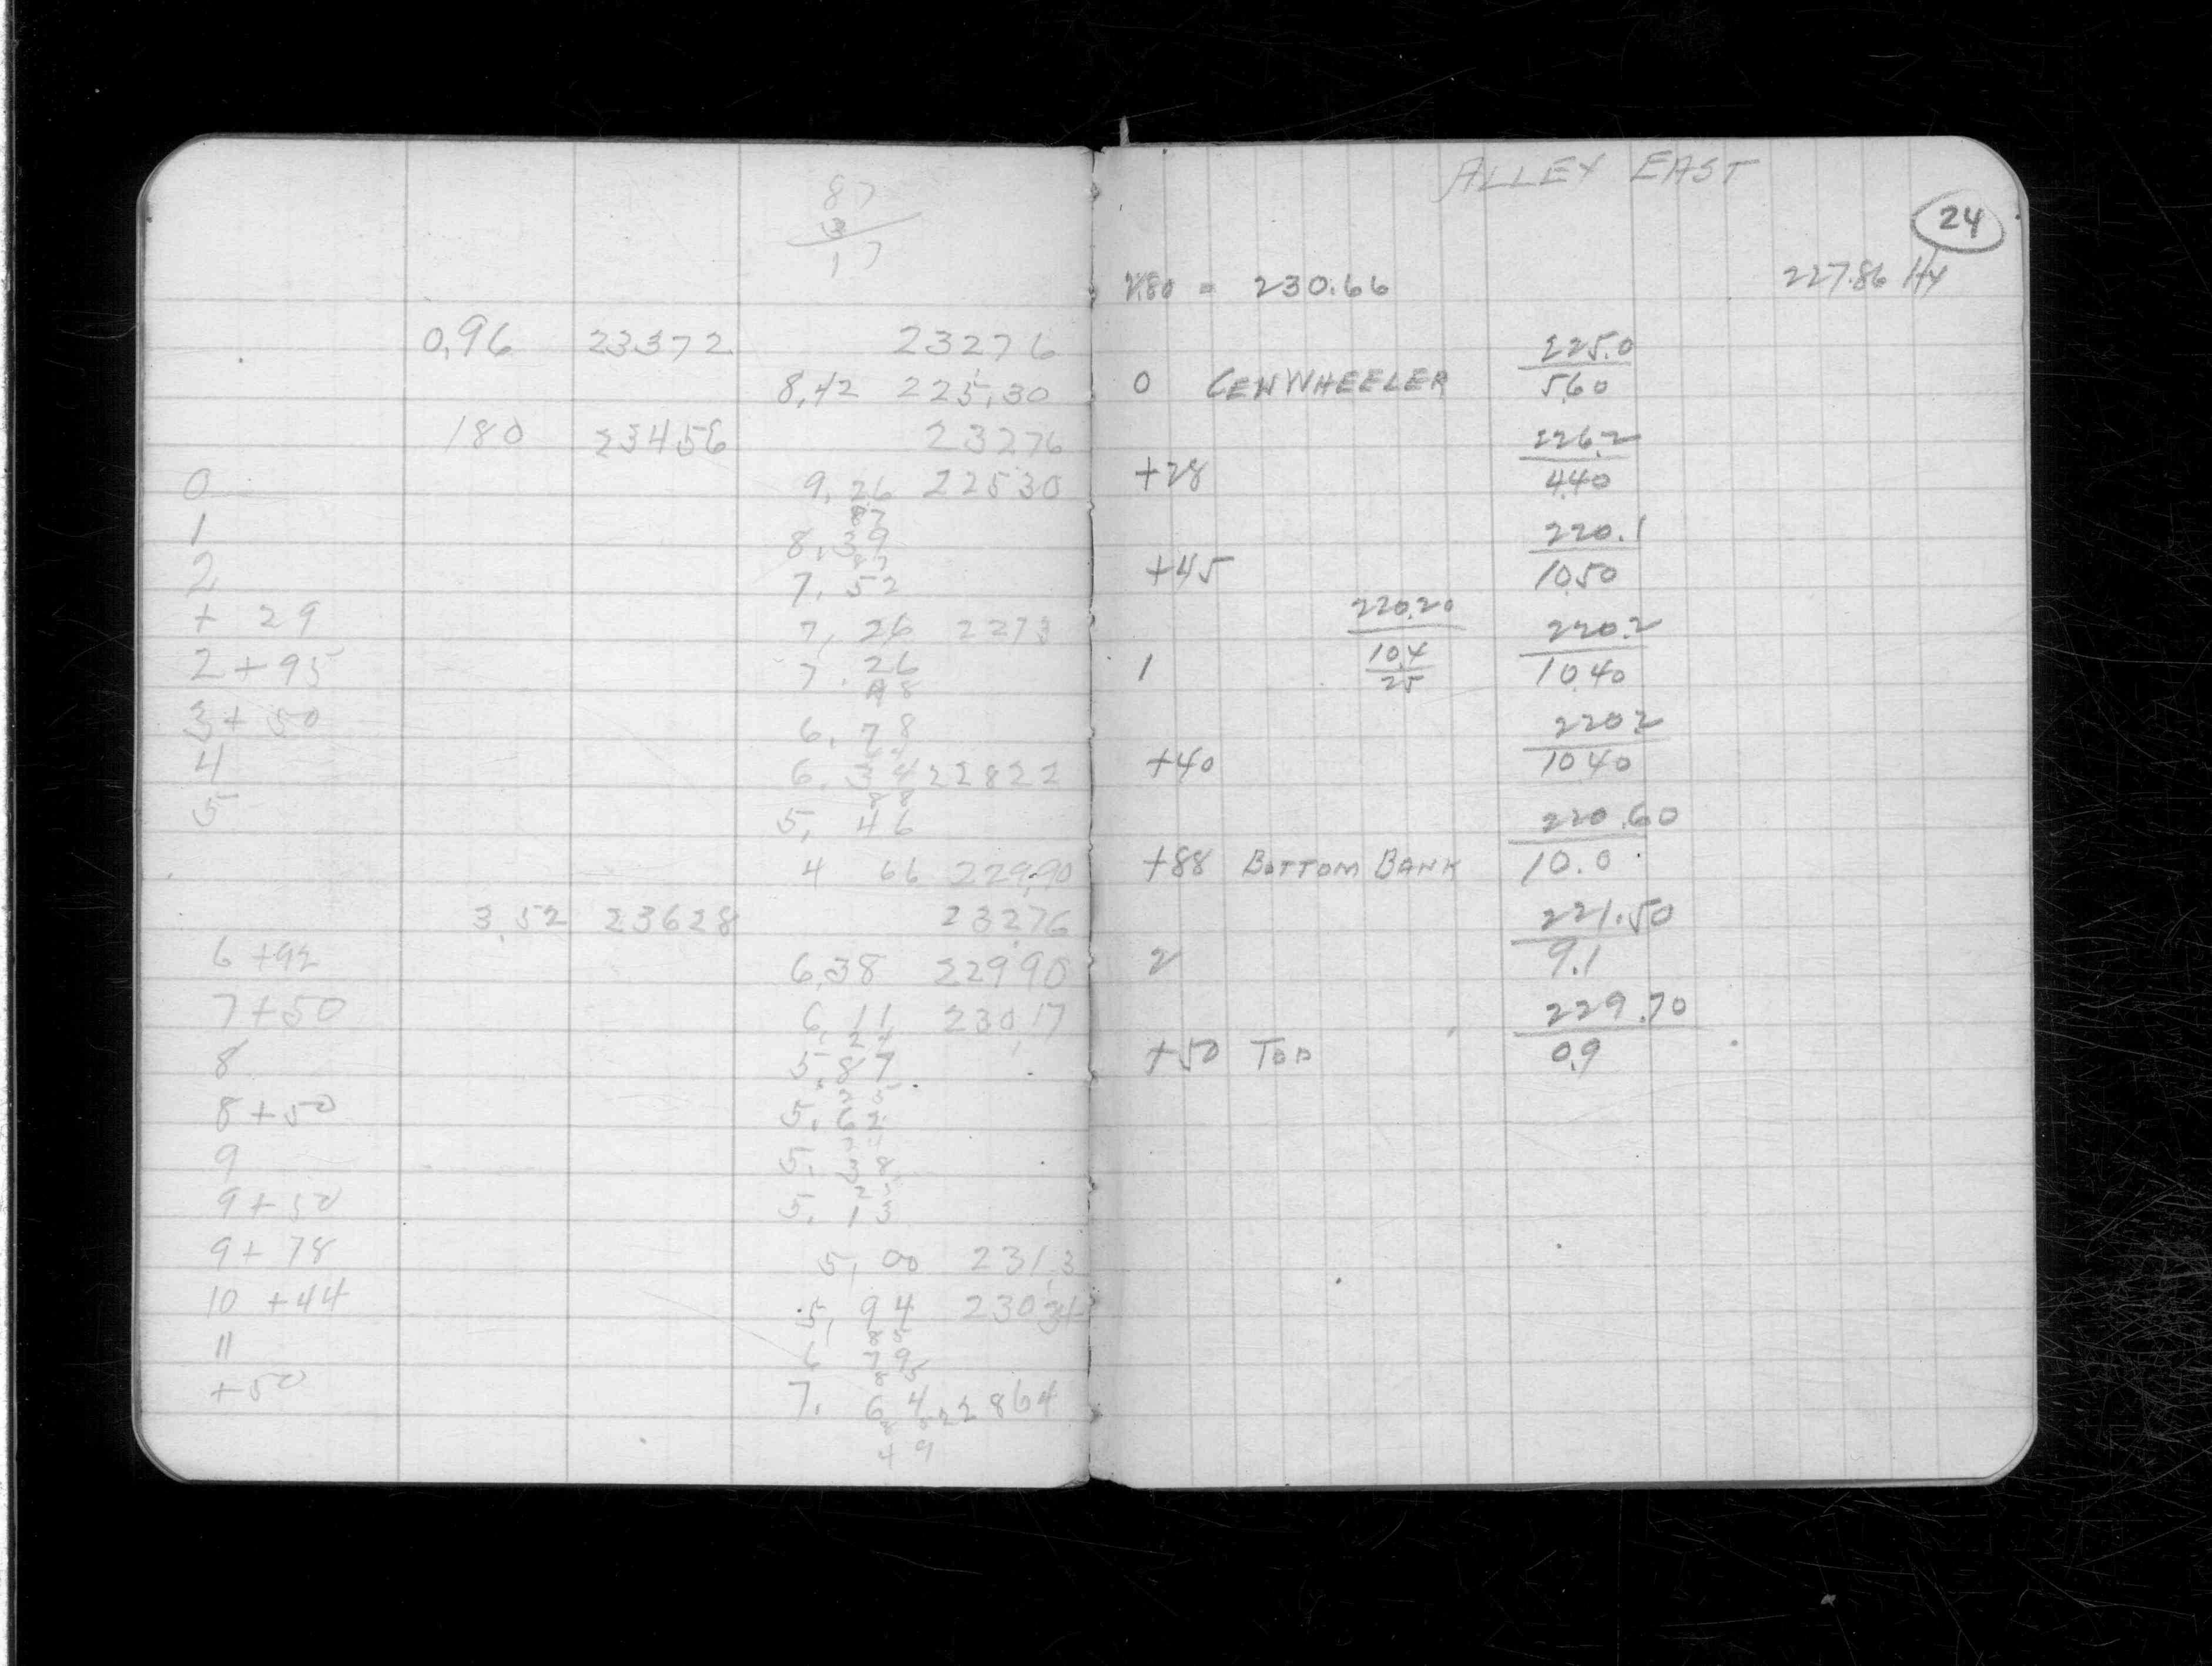 87
3
17
0,96 23372 23276
8,42 225,30
180 23456 23276
0 9,26 22530
87
1 8,39
87
2 7,52
+ 29 7,26 2273
2+95 7.26
48
3+50 6,78
4 6.34 22822
88
5 5,46
4 66 229,90
3,52 23628 23276
6+92 6,38 22990
7+50 6,11 230,17
24
8 5,87
25
8+50 5.62
9 5.38
25
9+50 5.13
9+78 5,00 231,3
10+44 5,94 230 34
85
11 6 79
85
+50 7. 64 22864
49
ALLEY EAST
24
2.80 = 230.66 227.86 HY
225.0
0 CENWHEELER 5.60
226.2
+28 4.40
220.1
+45 10.50
220.20 220.2
1 10.4 10.40
25
220.2
+40 10.40
220.60
+88 BOTTOM BANK 10.0
221.50
2 9.1
229.70
+50 TOP 0.9